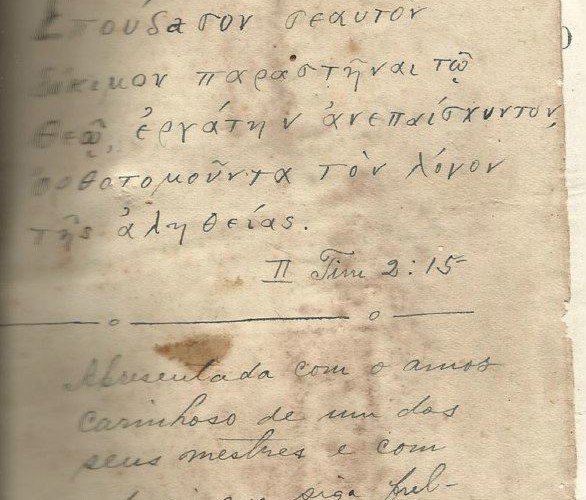 Σπούδασον σεαυτον
δόκιμον παραστῆναι τῷ
θεῷ, ἐργάτην ἀνεπαίσχυντον,
ὀρθοτομοῦντα τὸν λόγον
τῆς ἀληθείας.
II Tim 2:15
Apresentada com o amor
carinhoso de um dos
seus mestres e com
que siga fiel-